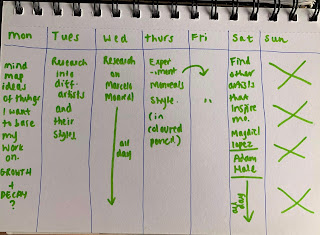 Mon Tues Wed Thurs Fri Sat Sun
mind
map
ideas
of things
I want
to base
my
work
on.
GROWTH
+
DECAY
?
Research
into
diff.
artists
and
their
styles
Research
on
Marcelo
all
day
Exper
-iment
style.
(in
coloured
pencil)
"
Find
other
artists
that
inspire
me.
lopez
Adam
Hale
all
day